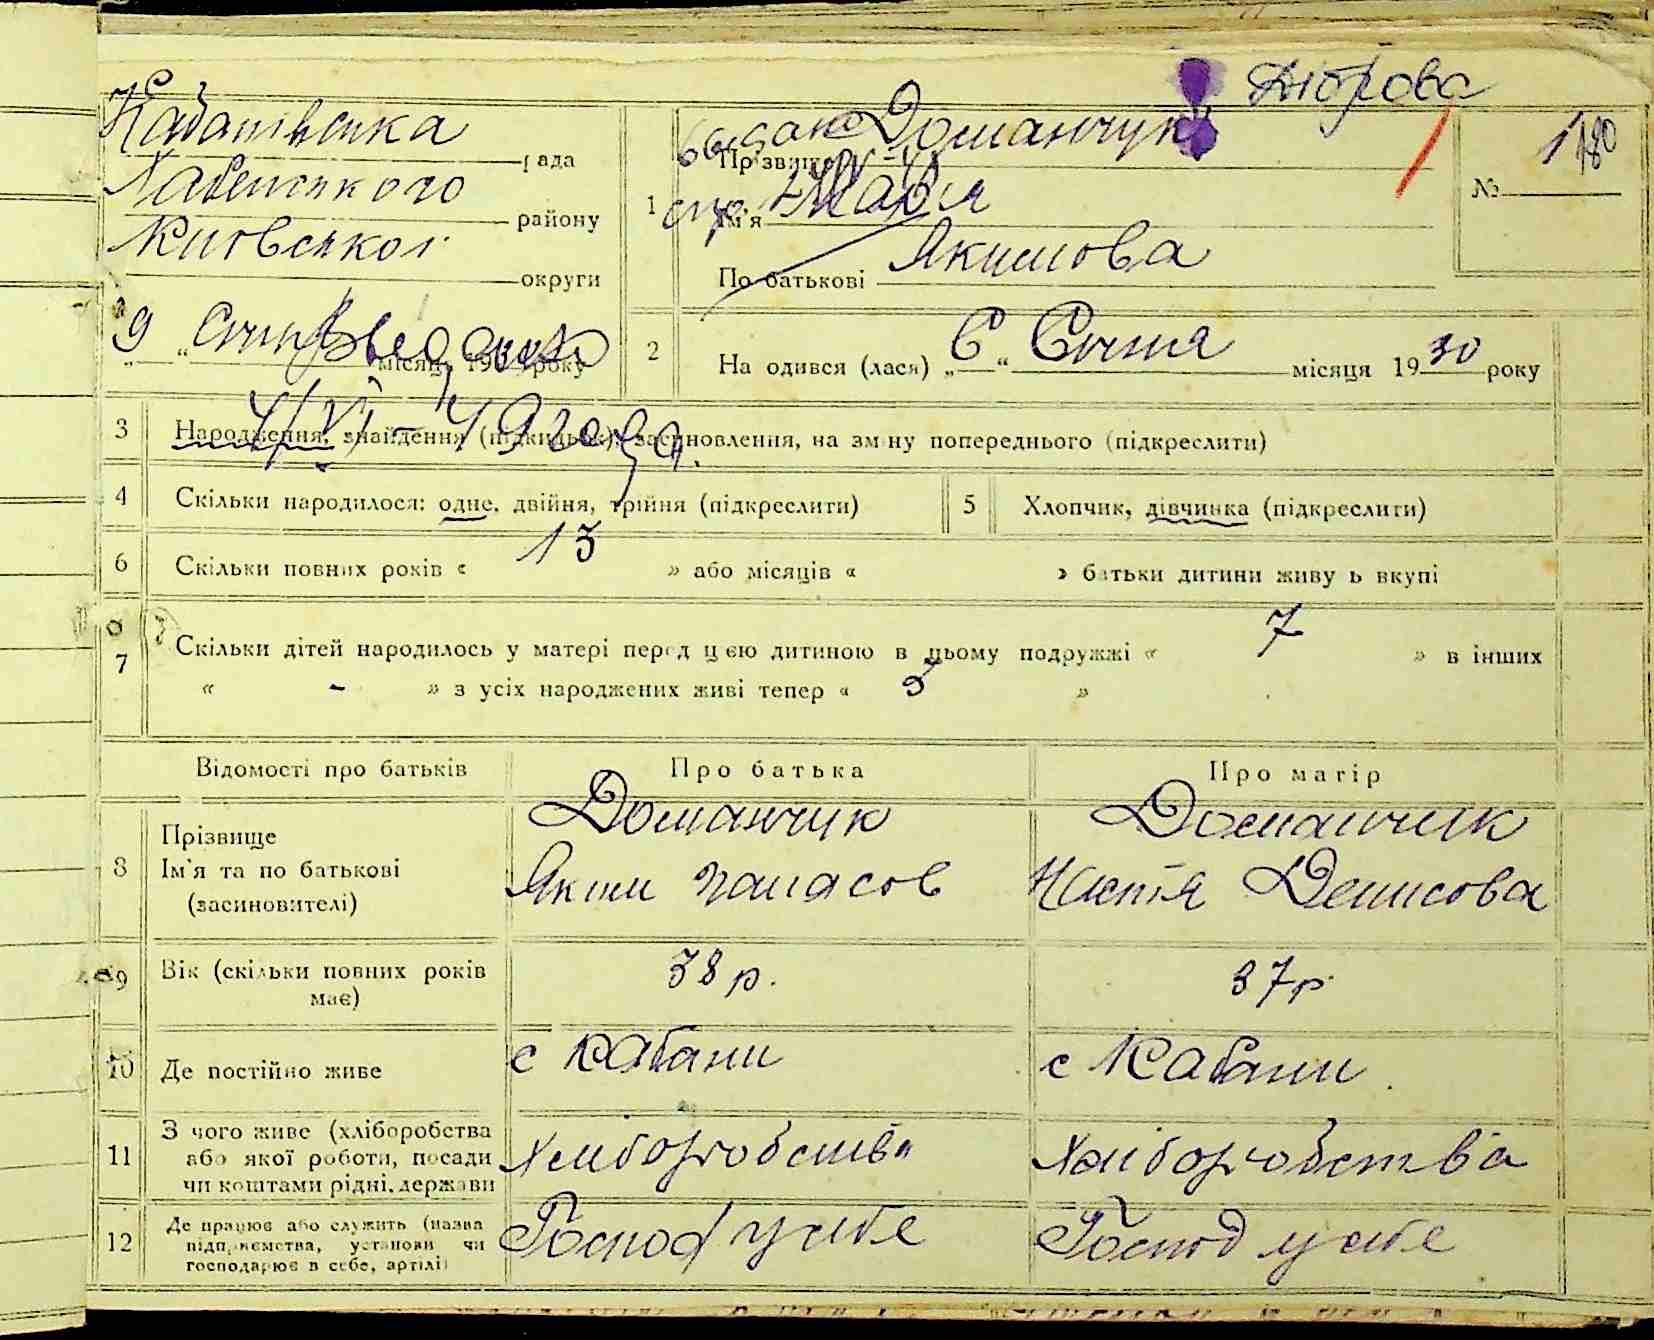 Діброва
Кабанівська рада
Хабенського району
Київської округи
"9" Січня місяця 1930 року
Выдано
4/VI - 49 года.
1 Прізвище Доманчук
Ім'я Марія
По батькові Якимова
№ 1
180
2 На одився (лася) „6“ Січня місяця 1930 року
3 Народження, знайдення (підкидьок), засиновлення, на зміну попереднього (підкреслити)
4 Скільки народилося: одне, двійня, трійня (підкреслити)
5 Хлопчик, дівчинка (підкреслити)
6 Скільки повних років « 13 » або місяців « » батьки дитини живу ь вкупі
7 Скільки дітей народилось у матері перед цією дитиною в цьому подружжі « 7 » в інших
« - » з усіх народжених живі тепер « 5 »
Відомості про батьків Про батька Про матір
8 Прізвище Ім'я та по батькові (засиновителі)
Доманчук Доманчук
Яким Панасов Настя Денисова
9 Вік (скільки повних років має) 38 р. 37 р.
10 Де постійно живе с Кабани с Кабани
11 З чого живе (хліборобства або якої роботи, посади чи коштами рідні, держави Хліборобства Хліборобства
12 Де працює або служить (назва підприємства, установи чи господарює в себе, артілі) Господ у себе Господ у себе